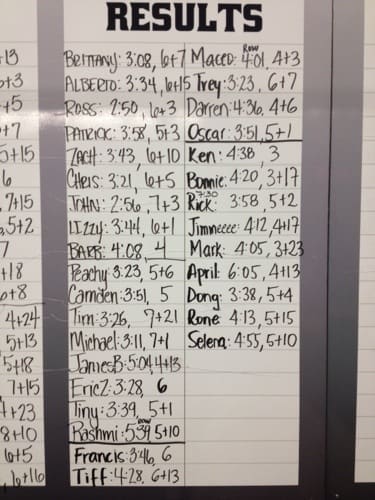 RESULTS
+13
6+3
+5
+7
5+15
6
7+15
5+2
7
+18
6+8
4+24
5+13
5+18
7+15
+23
8+10
6+5
6+16
BRITTANY: 3:08, 6+7
ALBERTO: 3:34, 6+15
ROSS: 2:50, 6+3
PATRICK: 3:58, 5+3
ZACH: 3:43, 6+10
CHRIS: 3:21, 6+5
JOHN: 2:56, 7+3
LIZZY: 3:44, 6+1
BARB: 4:08, 4
Peachy: 3:23, 5+6
Camden: 3:51, 5
Tim: 3:26, 7+21
Michael: 3:11, 7+1
James B: 5:04, 4+13
Eric Z: 3:28, 6
Tiny: 3:39, 5+1
row
Rashmi: 5:39, 5+10
Francis: 3:46, 6
Tiff: 4:28, 6+13
Row
Maceo: 4:01, 4+3
Trey: 3:23, 6+7
Darren: 4:36, 4+6
Oscar: 3:51, 5+1
Ken: 4:38, 3
Bonnie: 4:20, 3+17
7:30
Rick: 3:58, 5+2
Jimneeee: 4:12, 4+17
Mark: 4:05, 3+23
April: 6:05, 4+13
Dong: 3:38, 5+4
Rone: 4:13, 5+15
Selena: 4:55, 5+10